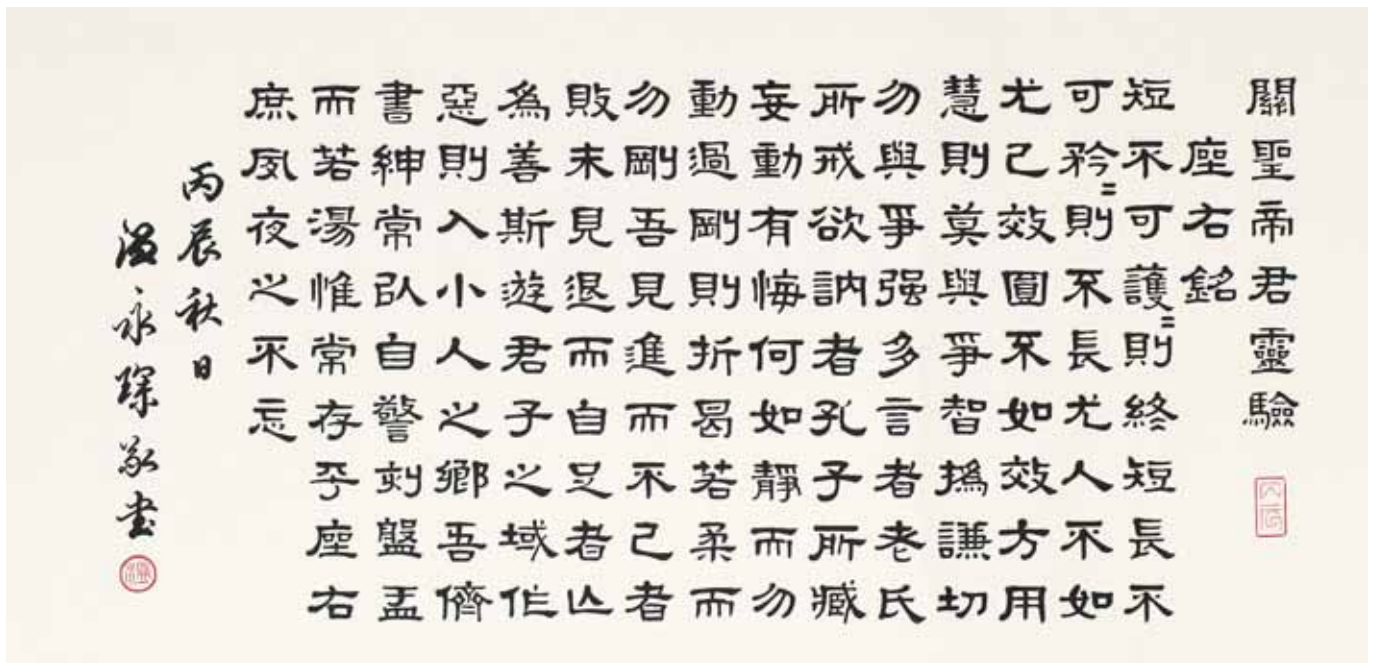 關聖帝君靈驗
座右銘
短不可護〻則終短長不
可矜〻則不長尤人不如
尤己效圓不如效方用
慧則莫與爭智撝謙切
勿與爭强多言者老氏
所戒欲訥者孔子所臧
妄動有悔何如靜而勿
動過剛則折曷若柔而
勿剛吾見進而不己者
敗未見退而自足者亾
為善斯遊君子之域作
惡則入小人之鄉吾儕
書紳常以自警刻盤盂
而若湯惟常存乎座右
庶夙夜之不忘
丙辰秋日
溫永琛敬書